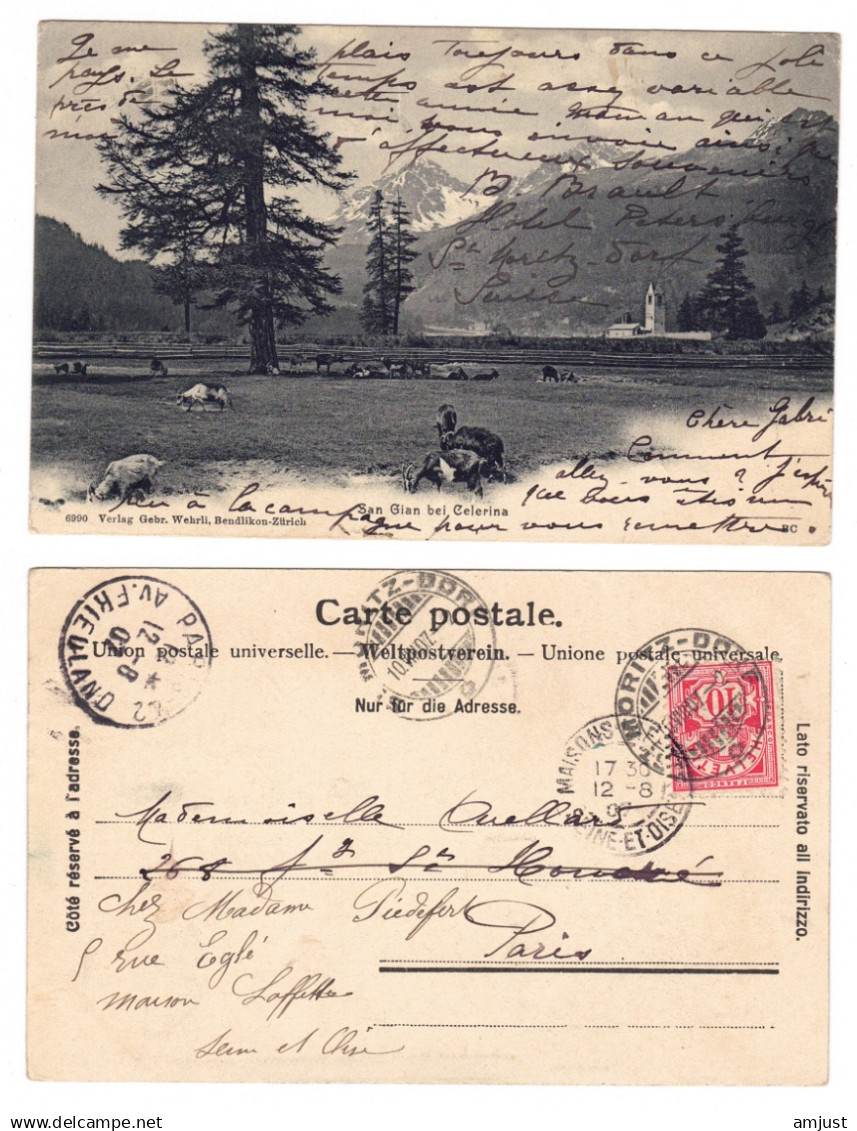 Je me plais toujours dans ce joli
pays. Le temps est assez variable
cette année Maman qui est
près de moi vous envoie ainsi que
moi d'affectueux souvenirs
B Brault
Hotel Petersburg
St Moritz-Dorf
Suisse
Chère Gabri
Comment
allez-vous ? J'espère
que vous êtes un
peu à la campagne pour vous remettre.
6990 Verlag Gebr. Wehrli, Bendlikon-Zürich
San Gian bei Celerina
BC
Carte postale.
Union postale universelle. — Weltpostverein. — Unione postale universale.
Nur für die Adresse.
Côté réservé à l'adresse.
Lato riservato all indirizzo.
AV. FRIEDLAND
12-8
MORITZ-DORF
MORITZ-DORF
10
HELVETIA
FRANCO
MAISONS
17 30
12-8
SEINE-ET-OISE
Mademoiselle
268 fg St Honoré
Paris
chez Madame Piedefert
5 rue Eglé
maison Laffitte
Seine et Oise
amjust